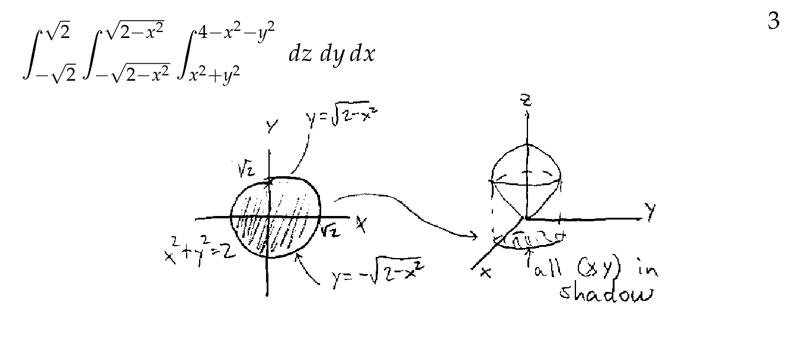 3
∫_{-√2}^{√2} ∫_{-√2-x²}^{√2-x²} ∫_{x²+y²}^{4-x²-y²} dz dy dx
y=√2-x²
Y
√2
X
√2
x²+y²=2
y=-√2-x²
Z
Y
X
all (xy) in
shadow